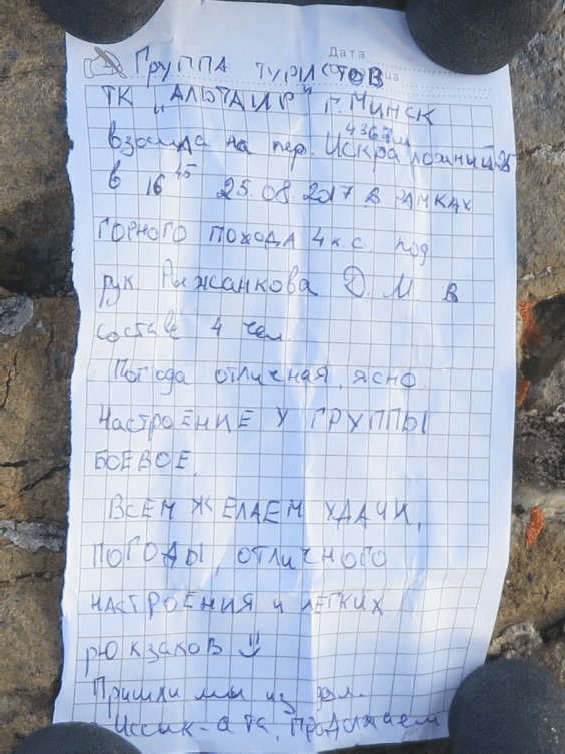 Дата
Группа туристов
ТК „Альтаир" г. Минск
4367м
взошла на пер. Искра ложный 2Б
в 16 45 25.08 2017 в рамках
горного похода 4 к с под
рук Рыжанкова Д. М в
составе 4 чел.
Погода отличная, ясно
Настроение у группы
боевое.
Всем желаем удачи,
погоды, отличного
настроения и легких
рюкзаков
Пришли мы из дол.
Иссик-ата, продолжаем